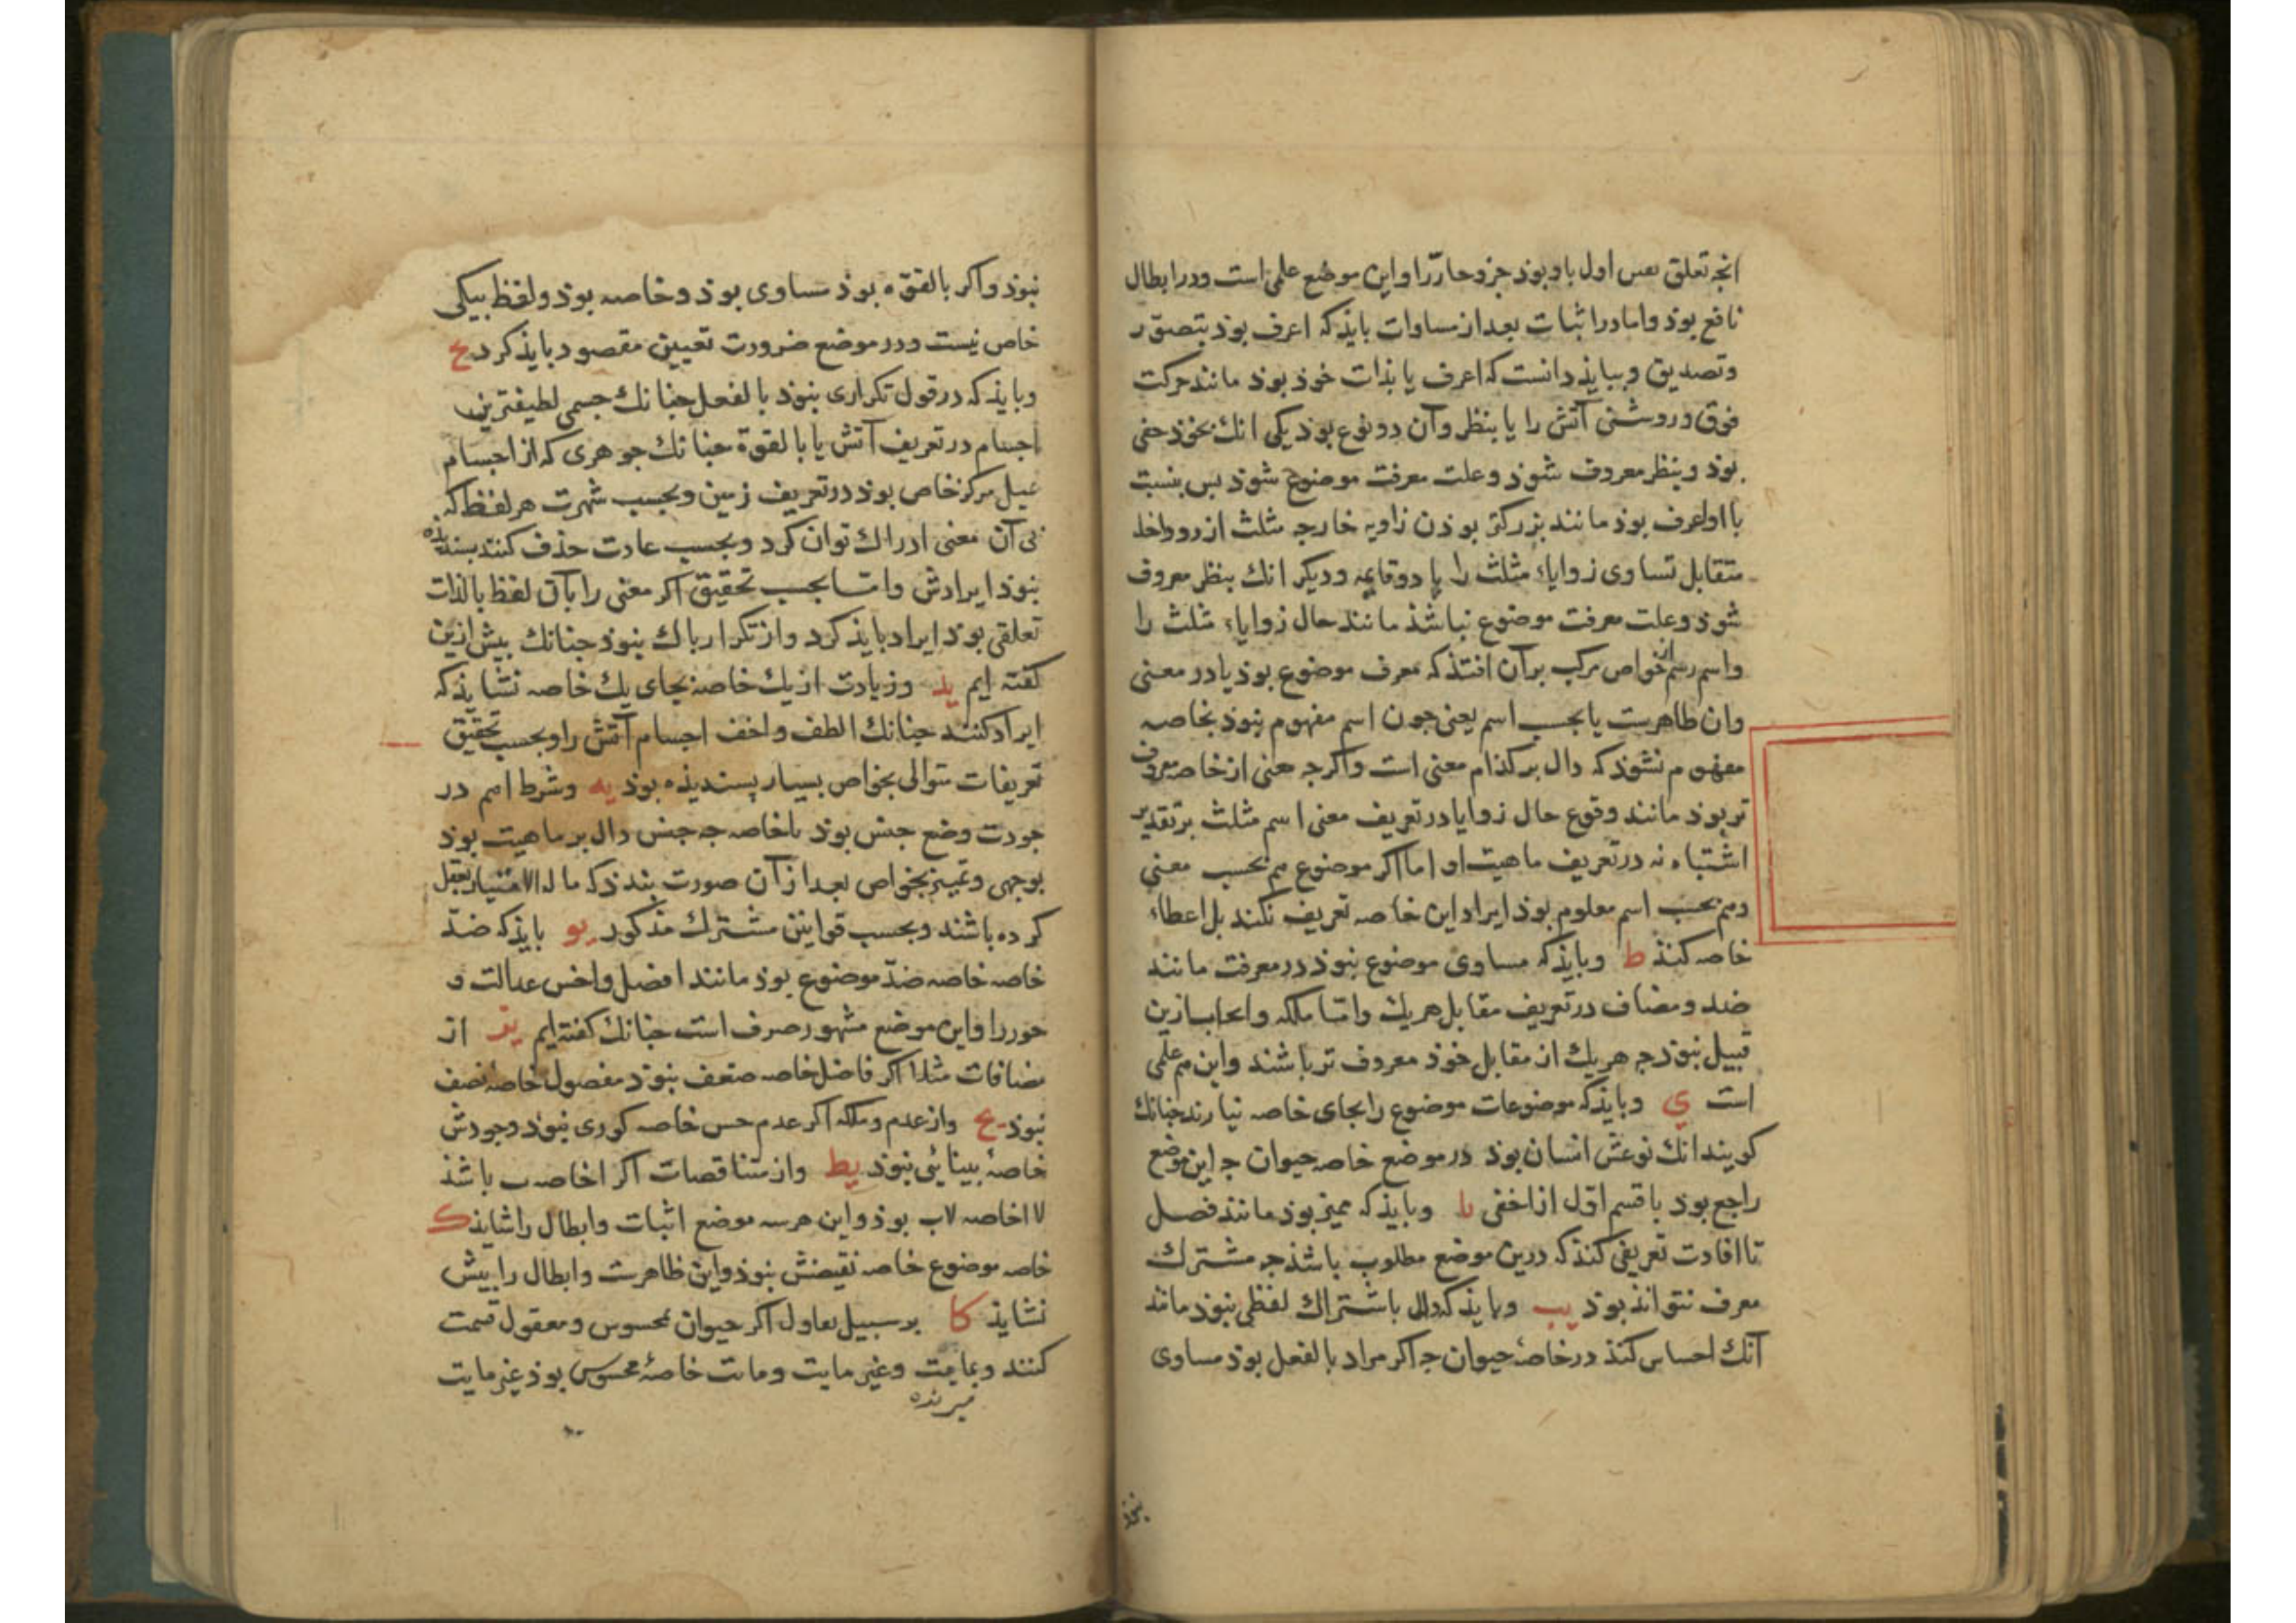 انجه تعلق نفس اول باو بوذ جزو حار را و این موضع علمی است و در ابطال
نافع بوذ و اما در اثبات بعد از مساوات بایذ که اعرف بوذ بتصور
و تصدیق و ببایذ دانست که اعرف یا بذات خوذ بوذ مانند حرکت
فوق و روشنی آتش را یا بنظر و آن دو نوع بوذ یکی انک بخوذ خفی
بوذ و بنظر معروف شوذ و علت معرفت موضوع شوذ بس بنسبت
با او اعرف بوذ مانند بزرکتر بوذن زاویه خارجه مثلث از دو داخله
متقابل تساوی زوایاء مثلث را با دو قایمه و دیکر انک بنظر معروف
شوذ و علت معرفت موضوع نباشذ مانند حال زوایاء مثلث را
و اسم رسم از خواص مرکب بر آن افتذ که معرف موضوع بوذ یا در معنی
و ان ظاهرست یا بحسب اسم یعنی جون اسم مفهوم نبوذ بخاصه
مفهوم نشوذ که دال بر کذام معنی است و اکرجه معنی از خاصه معروف
تر بوذ مانند وقوع حال زوایا در تعریف معنی اسم مثلث بر تقدیر
اشتباه نه در تعریف ماهیت او اما اکر موضوع هم بحسب معنی
و هم بحسب اسم معلوم بوذ ایراد این خاصه تعریف نکند بل اعطاء
خاصه کنذ ط و بایذ که مساوی موضوع نبوذ در معرفت مانند
ضد و مضاف در تعریف مقابل هر یک و اما ملکه و ایجاب ازین
قبیل نبوذ جه هر یک از مقابل خوذ معروف تر باشند و این هم علمی
است ی و بایذ که موضوعات موضوع را بجای خاصه نیارند جنانک
کویند انک نوعش انسان بوذ در موضع خاصه حیوان جه این موضع
راجع بوذ با قسم اول از اخفی یا و بایذ که ممیز بوذ مانند فصل
تا افادت تعریفی کنذ که درین موضع مطلوب باشذ جه مشترک
معرف نتواند بوذ یب و بایذ که دال باشتراک لفظی نبوذ مانند
آنک احساس کنذ در خاصهٔ حیوان جه اکر مراد بالفعل بوذ مساوی
نبوذ
نبوذ و اکر بالقوه بوذ مساوی بوذ و خاصه بوذ و لفظ بیکی
خاص نیست و در موضع ضرورت تعیین مقصود بایذ کرد یج
و بایذ که در قول تکراری نبوذ بالفعل جنانک جسمی لطیفترین
اجسام در تعریف آتش یا بالقوة جنانک جوهری که از اجسام
بمیل مرکز خاص بوذ در تعریف زمین و بحسب شهرت هر لفظ که
بی آن معنی ادراک توان کرد و بحسب عادت حذف کنند بسندیذه
نبوذ ایرادش و اما بحسب تحقیق اکر معنی را بآن لفظ بالذات
تعلقی بوذ ایراد بایذ کرد و از تکرار باک نبوذ جنانک بیش ازین
کفته ایم یذ و زیادت از یک خاصه بجای یک خاصه نشایذ که
ایراد کنند جنانک الطف و اخف اجسام آتش را و بحسب تحقیق
تعریفات متوالی بخواص بسیار پسندیذه بوذ یه و شرط اهم در
جودت وضع جنس بوذ با خاصه جه جنس دال بر ماهیت بوذ
بوجهی و تمییز بخواص بعد از آن صورت بندذ که ما له الامتیاز تعقل
کرده باشند و بحسب قوانین مشترک مذکور یو بایذ که ضد
خاصه خاصه ضد موضوع بوذ مانند افضل و اخس عدالت و
جور را و این موضع مشهور صرف است جنانک کفته ایم یز از
مضافات مثلا اکر فاضل خاصه ضعف نبوذ مفضول خاصه نصف
نبوذ یح و از عدم و ملکه اکر عدم حس خاصه کوری نبوذ وجودش
خاصهٔ بینائی نبوذ یط و از متناقضات اکر ا خاصه ب باشذ
لا ا خاصه لا ب بوذ و این هر سه موضع اثبات و ابطال را شایذ ک
خاصه موضوع خاصه نقیضش نبوذ و این ظاهرست و ابطال را بیش
نشایذ کا بر سبیل تعاول اکر حیوان بمحسوس و معقول قسمت
کنند و بمایت و غیر مایت و مایت خاصهٔ محسوس بوذ غیر مایت
میرنده